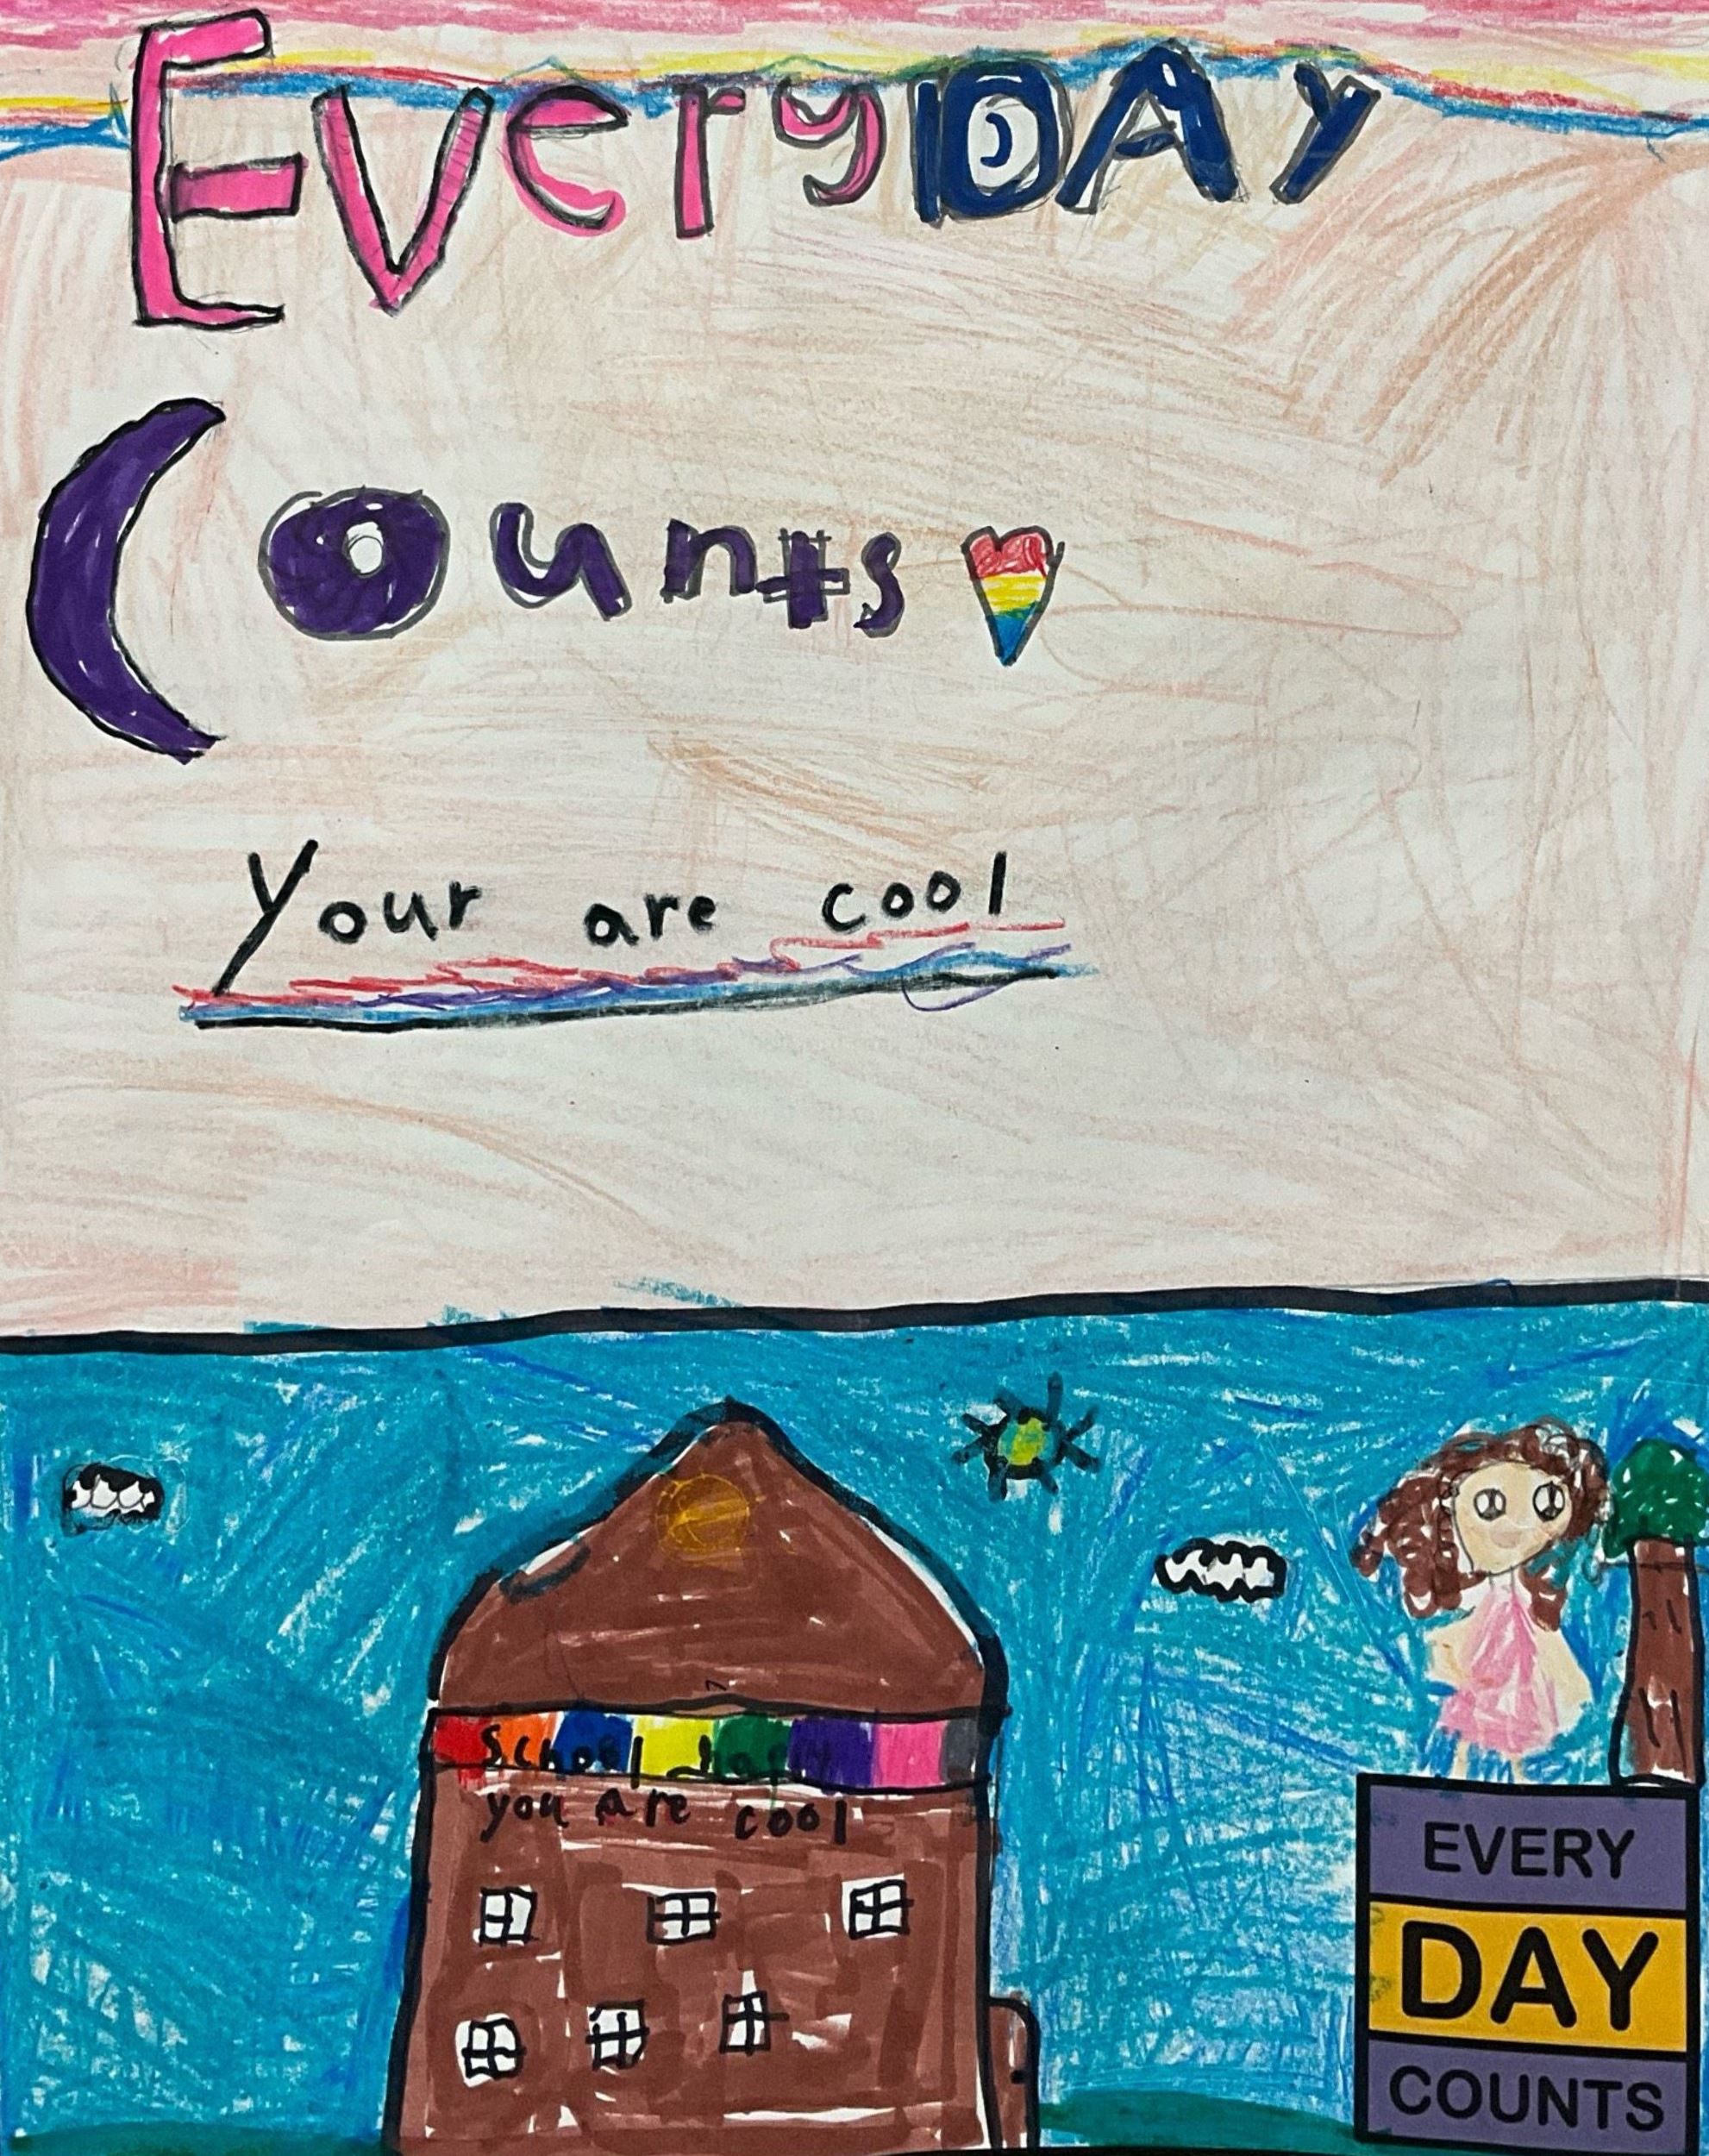 EveryDAY
Counts
Your are cool
School
you are cool
EVERY
DAY
COUNTS